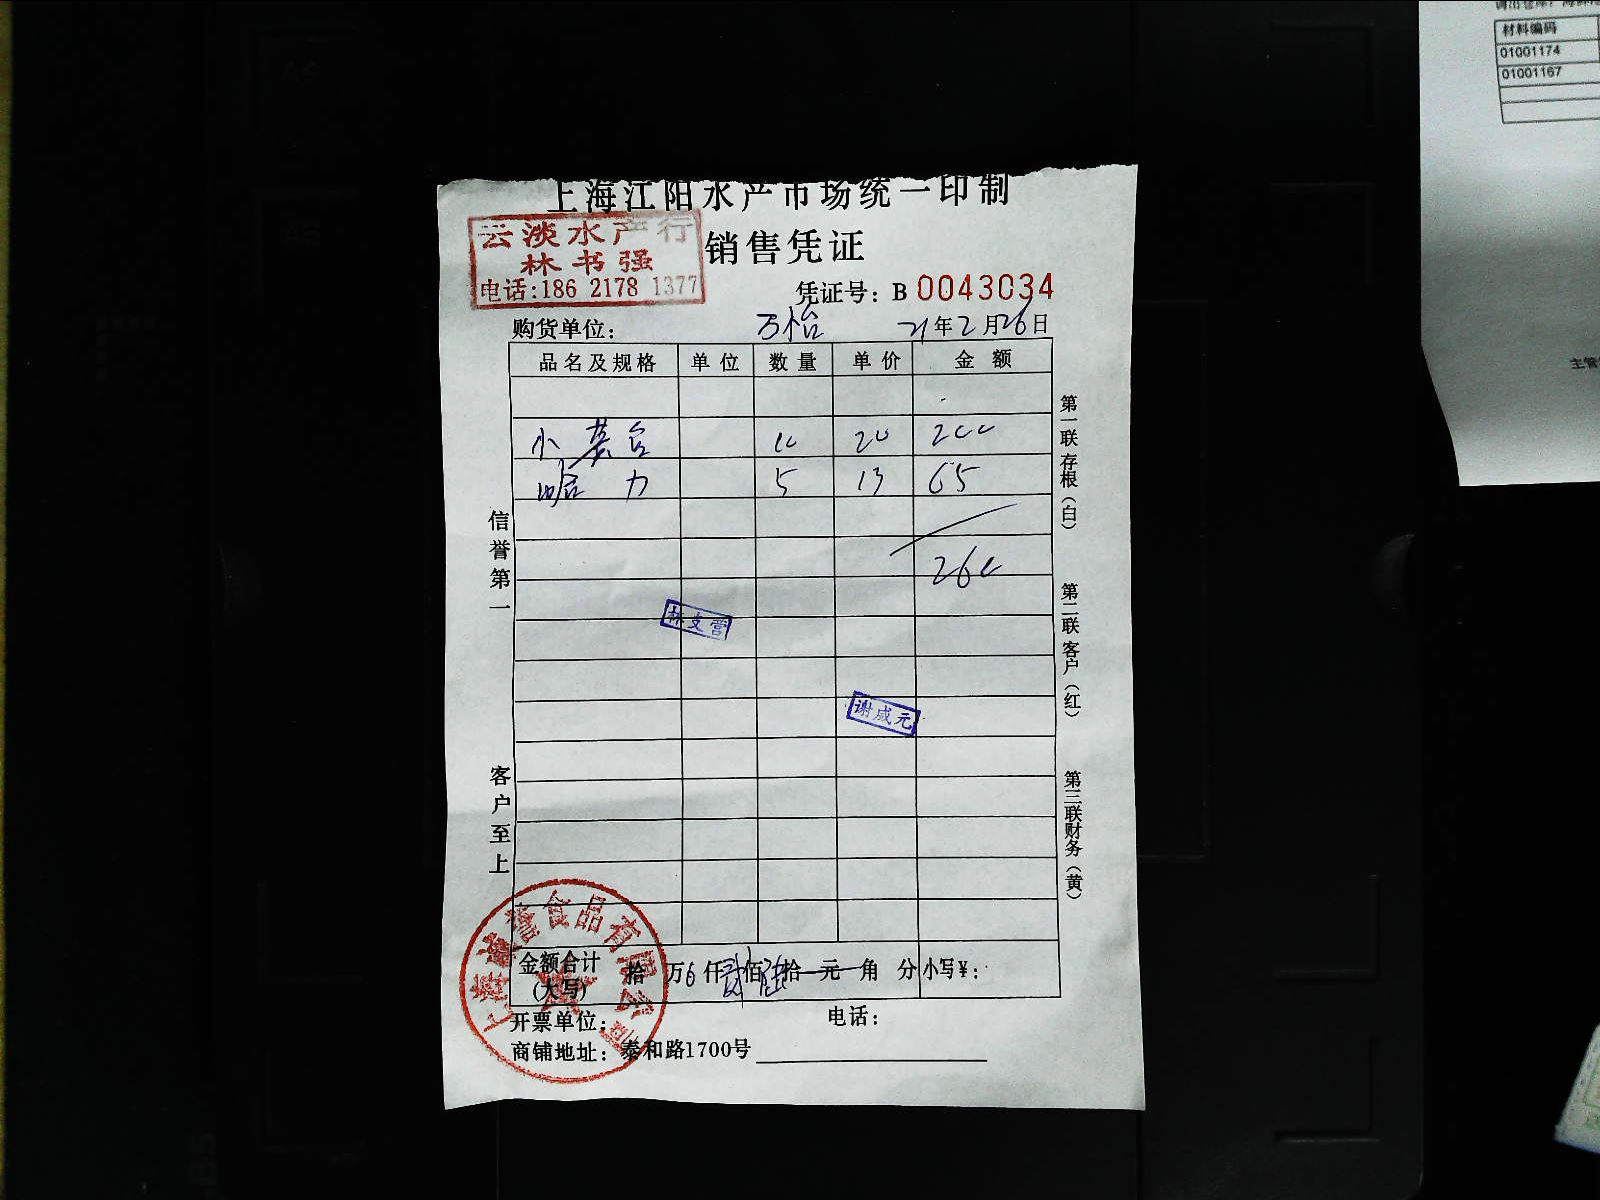 上海江阳水产市场统一印制
云淡水产行
林书强
电话:186 2178 1377
销售凭证
凭证号: B 0043034
购货单位: 万怡 21年2月26日
品名及规格 单位 数量 单价 金额
小 10 20 200
哈力 5 13 65
260
林支营
谢咸元
信誉第一
客户至上
第一联存根(白)
第二联客户(红)
第三联财务(黄)
金额合计(大写) 拾 万 仟 贰佰 陆拾 元 角 分 小写¥:
食品有限公司
开票单位: 电话:
商铺地址: 泰和路1700号
材料编码
01001174
01001167
主管